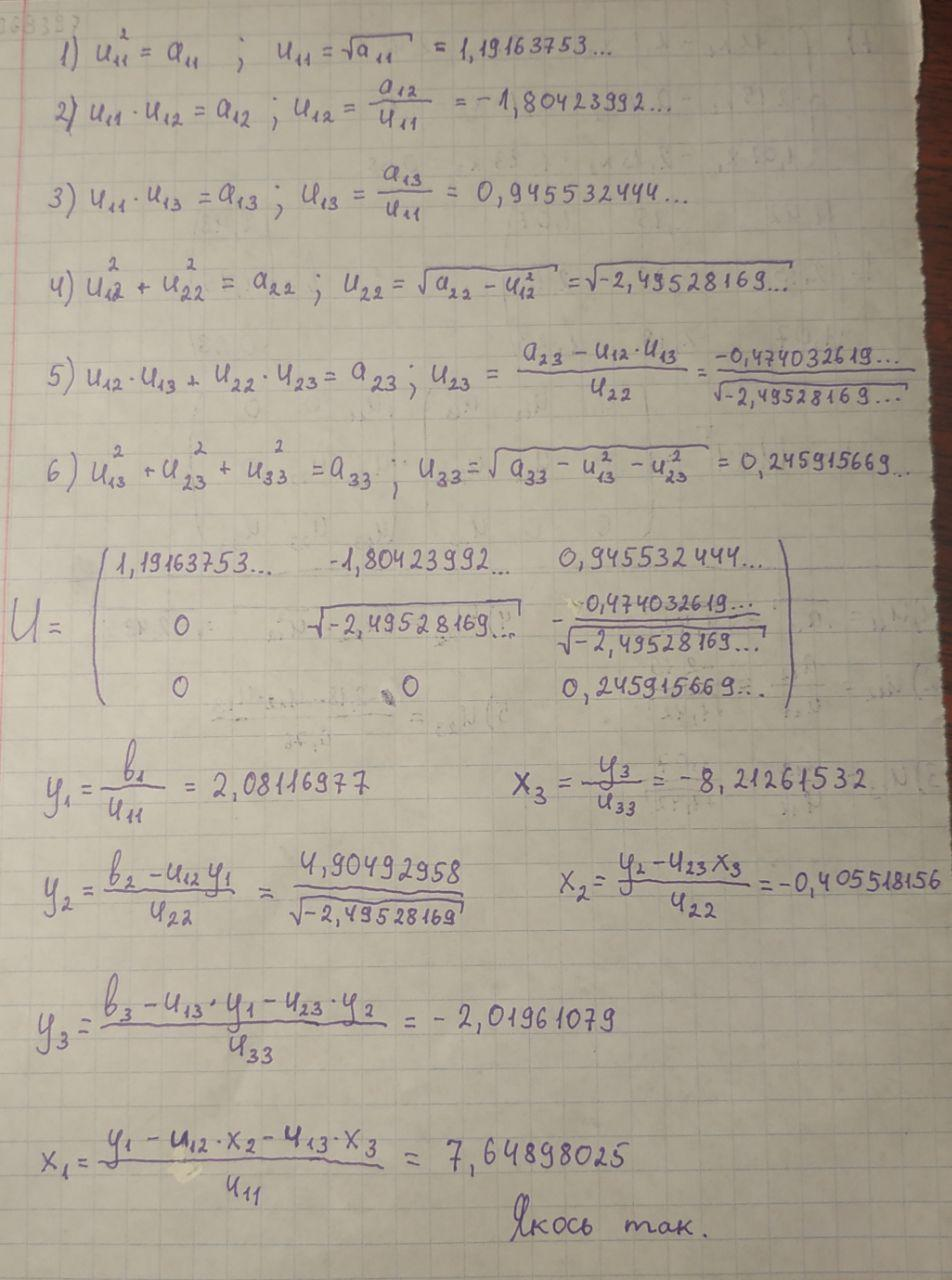 1) u₁₁² = a₁₁ ; u₁₁ = √a₁₁ = 1,19163753...
2) u₁₁ · u₁₂ = a₁₂ ; u₁₂ = a₁₂/u₁₁ = -1,80423992...
3) u₁₁ · u₁₃ = a₁₃ ; u₁₃ = a₁₃/u₁₁ = 0,945532444...
4) u₁₂² + u₂₂² = a₂₂ ; u₂₂ = √(a₂₂ - u₁₂²) = √(-2,49528169...)
5) u₁₂ · u₁₃ + u₂₂ · u₂₃ = a₂₃ ; u₂₃ = (a₂₃ - u₁₂ · u₁₃)/u₂₂ = -0,474032619.../√(-2,49528169...)
6) u₁₃² + u₂₃² + u₃₃² = a₃₃ ; u₃₃ = √(a₃₃ - u₁₃² - u₂₃²) = 0,245915669...
1,19163753... -1,80423992... 0,945532444...
U = 0 √(-2,49528169...) - 0,474032619.../√(-2,49528169...)
0 0 0,245915669...
y₁ = b₁/u₁₁ = 2,08116977 x₃ = y₃/u₃₃ = -8,21261532
y₂ = (b₂ - u₁₂ y₁)/u₂₂ = 4,90492958/√(-2,49528169) x₂ = (y₂ - u₂₃ x₃)/u₂₂ = -0,405518156
y₃ = (b₃ - u₁₃ · y₁ - u₂₃ · y₂)/u₃₃ = - 2,01961079
x₁ = (y₁ - u₁₂ · x₂ - u₁₃ · x₃)/u₁₁ = 7,64898025
Якось так.